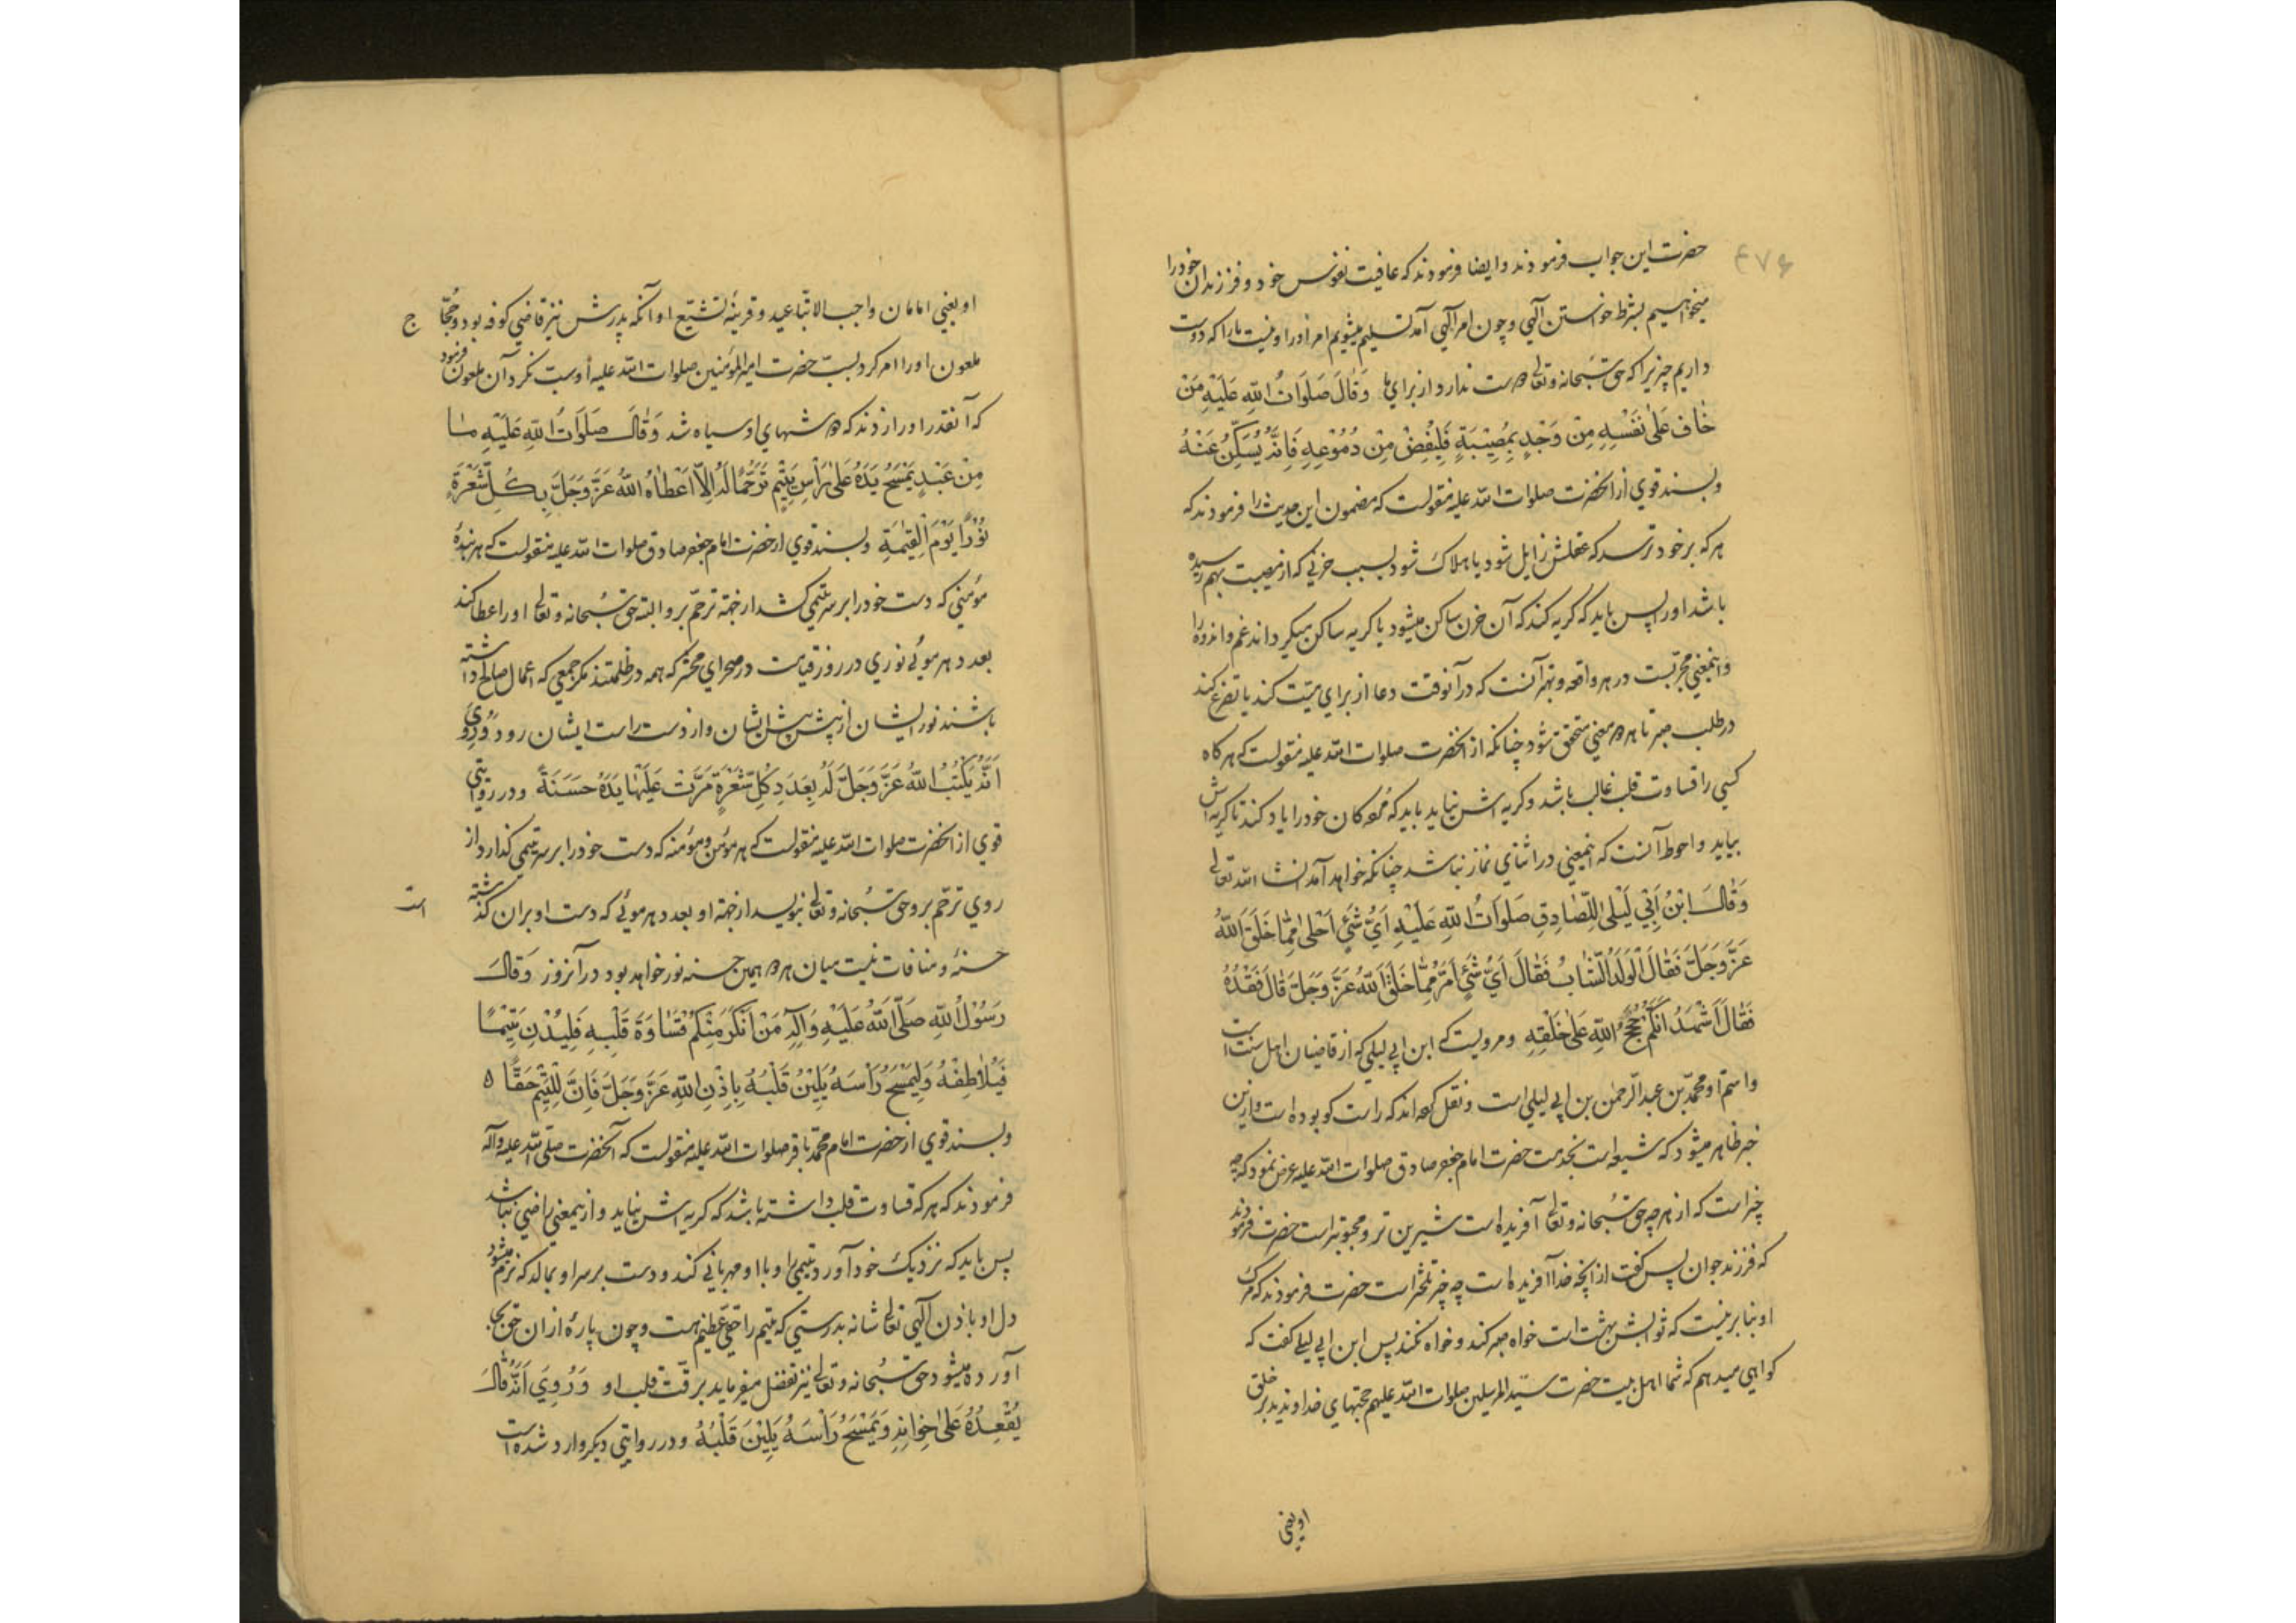 ۴۷۶
حضرت این جواب فرمودند و ایضا فرمودند که عافیت نفوس خود و فرزندان خود را
میخواهیم بشرط خواستن الهی و چون امر الهی آمد تسلیم میشویم امر او را و نیست ما را که دوست
داریم چیزیرا که حق سبحانه و تعالی دوست ندارد از برای ما وَقَالَ صَلَوَاتُ اللهِ عَلَیْهِ مَنْ
خَافَ عَلىٰ نَفْسِهِ مِنْ وَجْدٍ بِمُصِیْبَةٍ فَلْیُفِضْ مِنْ دُمُوْعِهِ فَاِنَّهُ یُسَكِّنُ عَنْهُ
و بسند قوی از آنحضرت صلوات الله علیه منقولست که مضمون این حدیث را فرمودند که
هر که بر خود ترسد که عقلش زایل شود یا هلاک شود بسبب حزنی که از مصیبت بهم رسیده
باشد او را پس باید که گریه کند که آن حزن ساکن میشود یا گریه ساکن میگرداند غم و اندوه را
و اینمعنی مجربست در هر واقعه و بهتر آنست که در آنوقت دعا از برای میت کند یا تضرع کند
در طلب صبر تا هر دو معنی متحقق شود چنانکه از آنحضرت صلوات الله علیه منقولست که هر گاه
کسی را قساوت قلب غالب باشد و گریه اش نیاید باید که مردگان خود را یاد کند تا گریه اش
بیاید و احوط آنست که اینمعنی در اثنای نماز نباشد چنانکه خواهد آمد انشاء الله تعالی
وَقَالَ ابْنُ اَبِیْ لَیْلىٰ لِلصَّادِقِ صَلَوَاتُ اللهِ عَلَیْهِ اَیُّ شَیْءٍ اَحْلىٰ مِمَّا خَلَقَ اللهُ
عَزَّ وَجَلَّ فَقَالَ الْوَلَدُ الشَّابُّ فَقَالَ اَیُّ شَیْءٍ اَمَرُّ مِمَّا خَلَقَ اللهُ عَزَّ وَجَلَّ قَالَ فَقْدُهُ
فَقَالَ اَشْهَدُ اَنَّكُمْ حُجَجُ اللهِ عَلىٰ خَلْقِهِ و مرویست که ابن ابی لیلی که از قاضیان اهل سنت است
و اسم او محمد بن عبد الرحمن بن ابی لیلی است و نقل کرده اند که راست گو بوده است و ازین
خبر ظاهر میشود که شیعه است بخدمت حضرت امام جعفر صادق صلوات الله علیه عرض نمود که چه
چیز است که از هر چه حق سبحانه و تعالی آفریده است شیرین تر و محبوبتر است حضرت فرمودند
که فرزند جوان پس گفت از آنچه خدا آفریده است چه چیز تلختر است حضرت فرمودند که مرگ
او بنابر نیست که ثوابش بهشت است خواه صبر کند و خواه نکند پس ابن ابی لیلی گفت که
گواهی میدهم که شما اهل بیت حضرت سید المرسلین صلوات الله علیهم حجتهای خداوندید بر خلق
او یعنی
او یعنی امامان واجب الاتباعید و قرینه تشیع او آنکه پدرش نیز قاضی کوفه بود و حجاج
ملعون او را امر کرد بسب حضرت امیر المؤمنین صلوات الله علیه او سب نکرد آن ملعون فرمود
که آنقدر او را زدند که دوشهای او سیاه شد وَقَالَ صَلَوَاتُ اللهِ عَلَیْهِ مَا
مِنْ عَبْدٍ یَمْسَحُ یَدَهُ عَلىٰ رَأْسِ یَتِیْمٍ تَرَحُّمًا لَهُ اِلَّا اَعْطَاهُ اللهُ عَزَّ وَجَلَّ بِكُلِّ شَعْرَةٍ
نُوْرًا یَوْمَ الْقِیٰمَةِ و بسند قوی از حضرت امام جعفر صادق صلوات الله علیه منقولست که هر بندهٔ
مؤمنی که دست خود را بر سر یتیمی کشد از جهة ترحم برو البته حق سبحانه و تعالی او را عطا کند
بعدد هر موئی نوری در روز قیامت در صحرای محشر که همه در ظلمتند مگر جمعی که اعمال صالح داشته
باشند نور ایشان از پیش پیش ایشان و از دست راست ایشان رود وَرُوِیَ
اَنَّهُ یَكْتُبُ اللهُ عَزَّ وَجَلَّ لَهُ بِعَدَدِ كُلِّ شَعْرَةٍ مَرَّتْ عَلَیْهَا یَدُهُ حَسَنَةً و در روایتی
قوی از آنحضرت صلوات الله علیه منقولست که هر مؤمن و مؤمنه که دست خود را بر سر یتیمی گذارد از
روی ترحم برو حق سبحانه و تعالی بنویسد از جهة او بعدد هر موئی که دست او بران گذشته
است
حسنهٔ و منافات نیست میان هر دو همین حسنه نور خواهد بود در آنروز وَقَالَ
رَسُوْلُ اللهِ صَلَّى اللهُ عَلَیْهِ وَآلِهِ مَنْ اَنْكَرَ مِنْكُمْ قَسَاوَةَ قَلْبِهِ فَلْیُدْنِ یَتِیْمًا
فَیُلَاطِفْهُ وَلْیَمْسَحْ رَأْسَهُ یَلِیْنُ قَلْبُهُ بِاِذْنِ اللهِ عَزَّ وَجَلَّ فَاِنَّ لِلْیَتِیْمِ حَقًّا ٥
و بسند قوی از حضرت امام محمد باقر صلوات الله علیه منقولست که آنحضرت صلی الله علیه و آله
فرمودند که هر که قساوت قلب داشته باشد که گریه اش نیاید و ازینمعنی راضی نباشد
پس باید که نزدیک خود آورد یتیمی را و با او مهربانی کند و دست بر سر او بمالد که نرم میشود
دل او باذن الهی تعالی شانه بدرستی که یتیم را حقی عظیم هست و چون پارهٔ ازان حق بجا
آورده میشود حق سبحانه و تعالی نیز تفضل میفرماید برقت قلب او وَرُوِیَ اَنَّهُ قَالَ
یُقْعِدُهُ عَلىٰ خِوَانِهِ وَیَمْسَحُ رَأْسَهُ یَلِیْنَ قَلْبُهُ و در روایتی دیگر وارد شده است